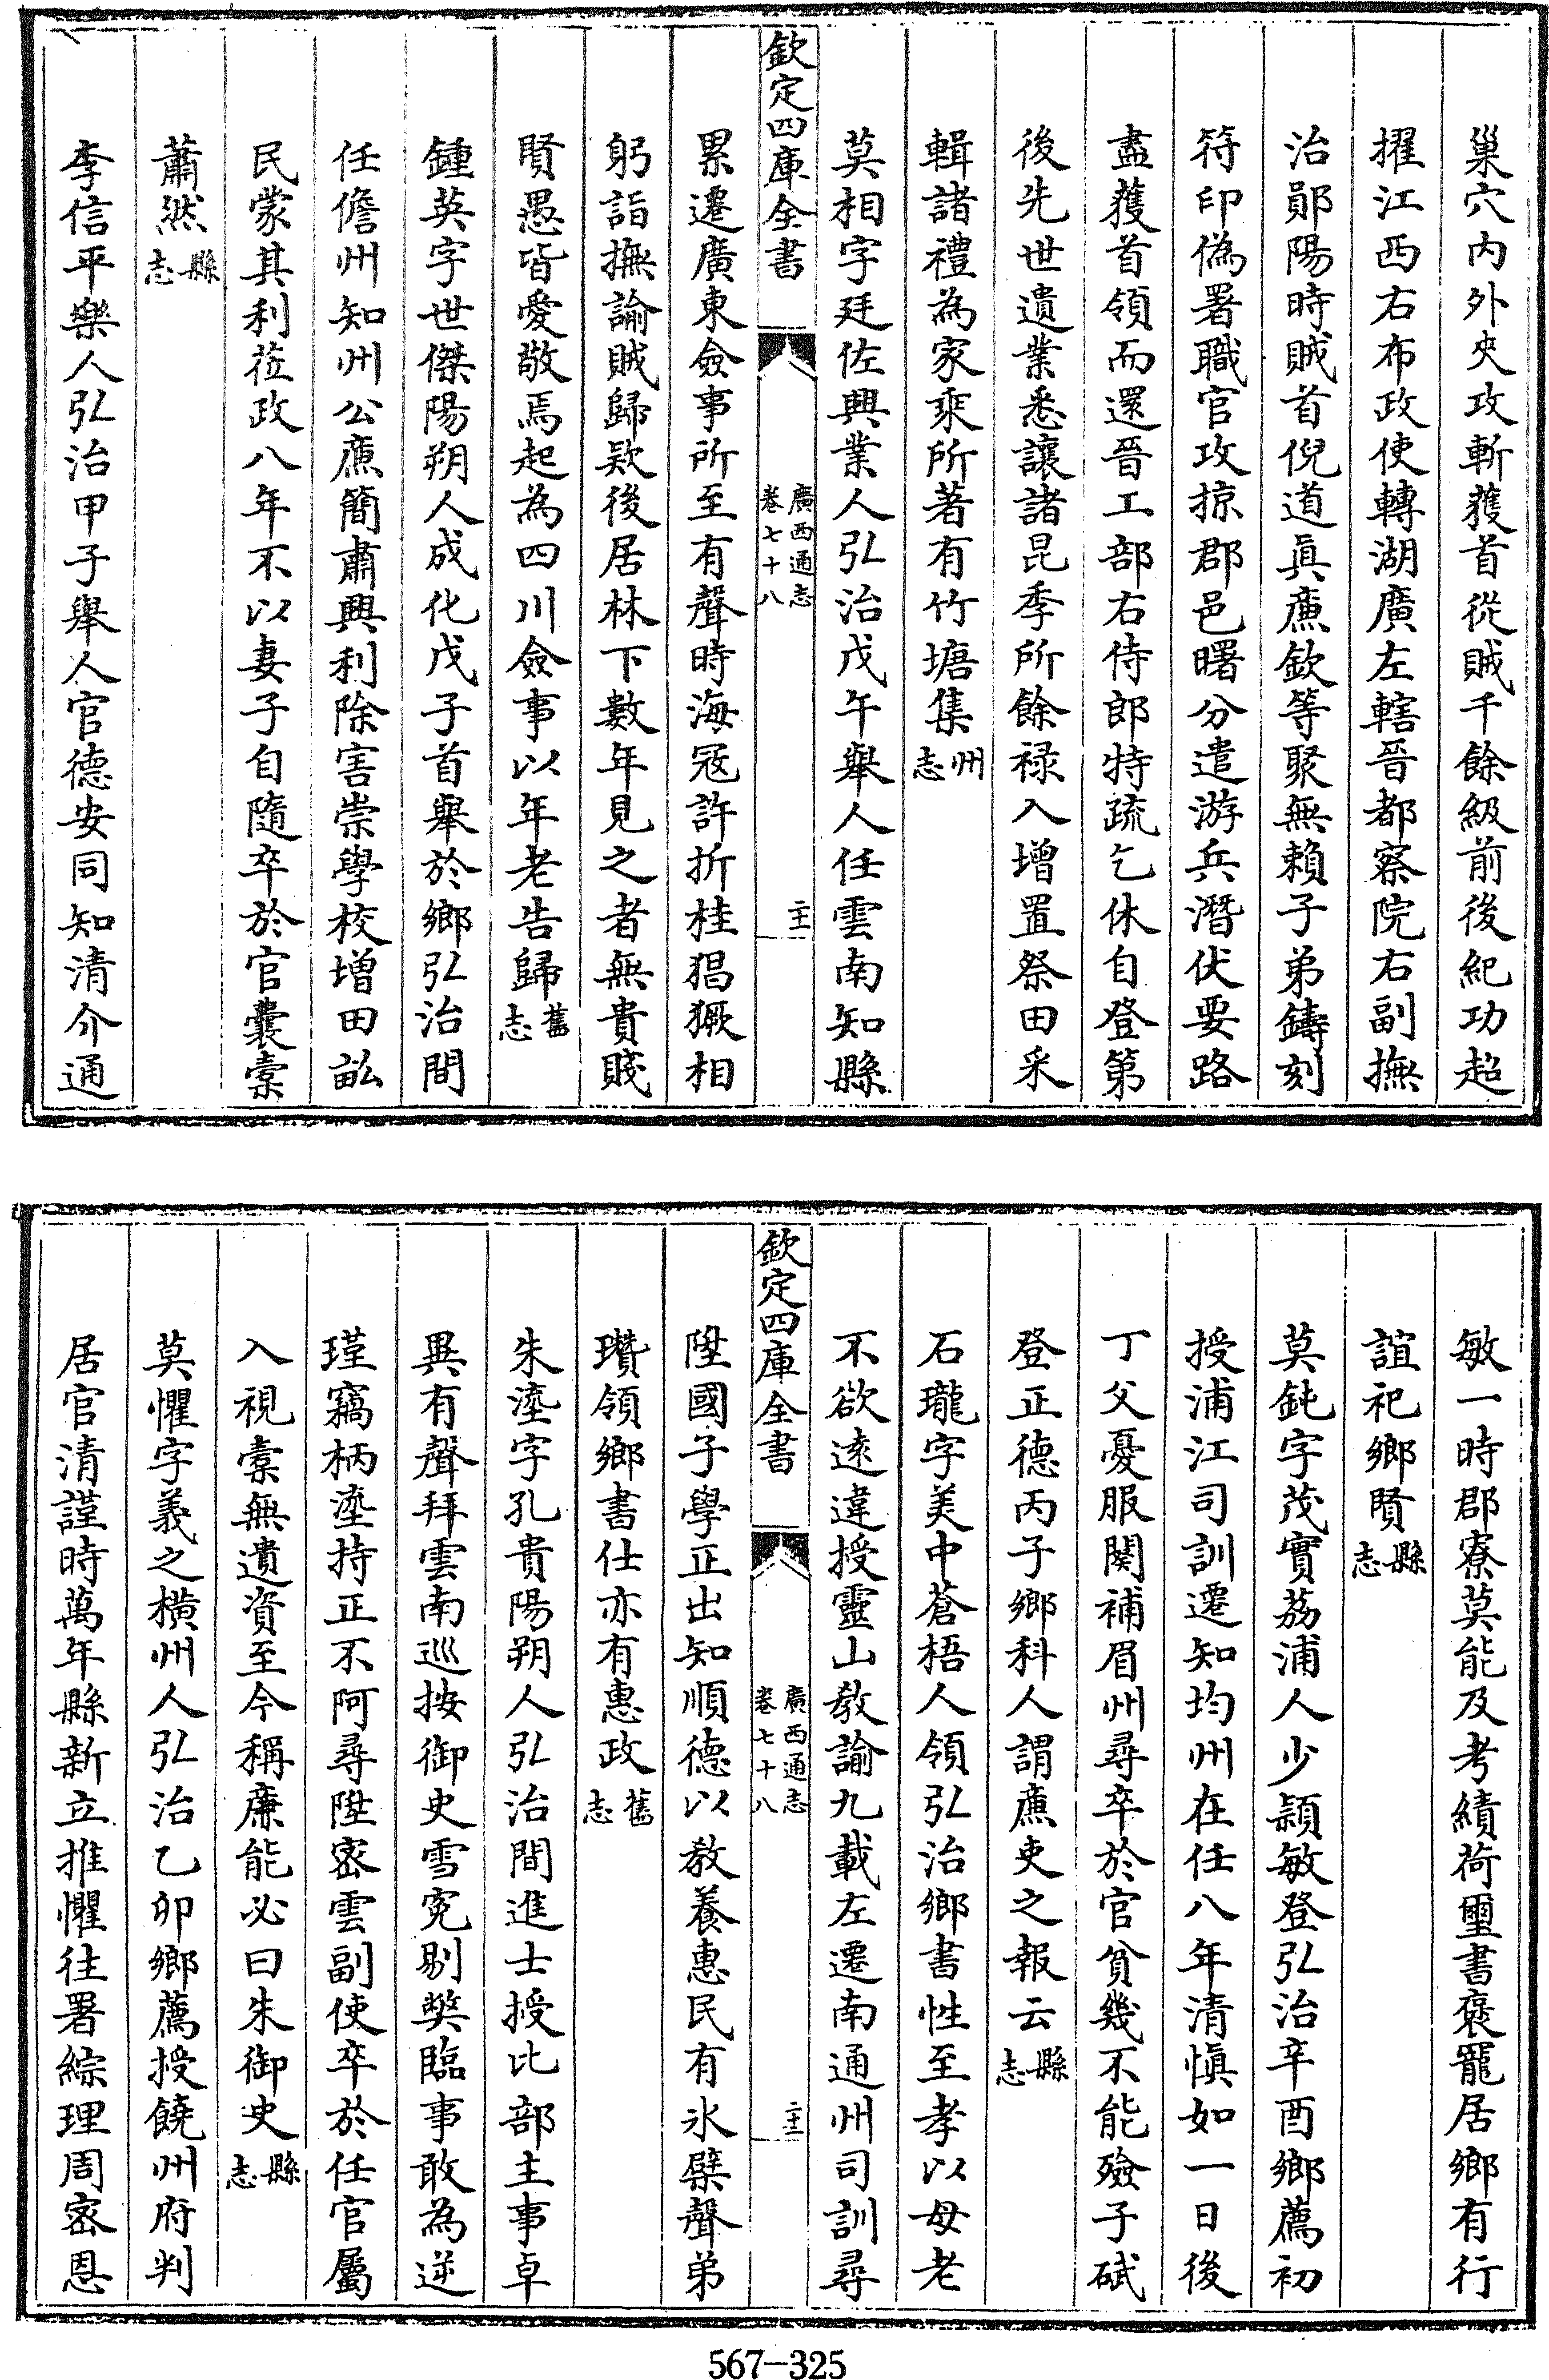 巢穴内外夾攻斬獲首從賊千餘級前後紀功超
擢江西右布政使轉湖廣左轄晉都察院右副撫
治鄖陽時賊首倪道真廌欽等聚無賴子弟鑄刻
符印偽署職官攻掠郡邑曙分遣游兵潛伏要路
盡獲首領而還晉工部右侍郎特疏乞休自登第
後先世遺業悉讓諸昆季所餘祿入增置祭田采
輯諸禮為家乘所著有竹塘集州志
莫相字廷佐興業人弘治戊午舉人任雲南知縣
欽定四庫全書
廣西通志
卷七十八
二十一
累遷廣東僉事所至有聲時海寇許折桂猖獗相
躬詣撫諭賊歸款後居林下數年見之者無貴賤
賢愚皆愛敬焉起為四川僉事以年老告歸舊志
鍾英字世傑陽朔人成化戊子首舉於鄉弘治間
任儋州知州公廉簡肅興利除害崇學校增田畝
民蒙其利蒞政八年不以妻子自隨卒於官囊橐
蕭然縣志
李信平樂人弘治甲子舉人官德安同知清介通
敏一時郡寮莫能及考績荷璽書褒寵居鄉有行
誼祀鄉賢縣志
莫鈍字茂實荔浦人少穎敏登弘治辛酉鄉薦初
授浦江司訓遷知均州在任八年清慎如一日後
丁父憂服闋補眉州尋卒於官貧幾不能殮子珷
登正德丙子鄉科人謂廉吏之報云縣志
石瓏字美中蒼梧人領弘治鄉書性至孝以母老
不欲遠違授靈山教諭九載左遷南通州司訓尋
欽定四庫全書
廣西通志
卷七十八
二十二
陞國子學正出知順德以教養惠民有氷檗聲弟
瓚領鄉書仕亦有惠政舊志
朱瀅字孔貴陽朔人弘治間進士授比部主事卓
異有聲拜雲南巡按御史雪寃剔奬臨事敢為逆
瑾竊柄瀅持正不阿尋陞密雲副使卒於任官屬
入視橐無遺資至今稱廉能必曰朱御史縣志
莫懼字義之橫州人弘治乙卯鄉薦授饒州府判
居官清謹時萬年縣新立推懼往署綜理周密恩
567-325